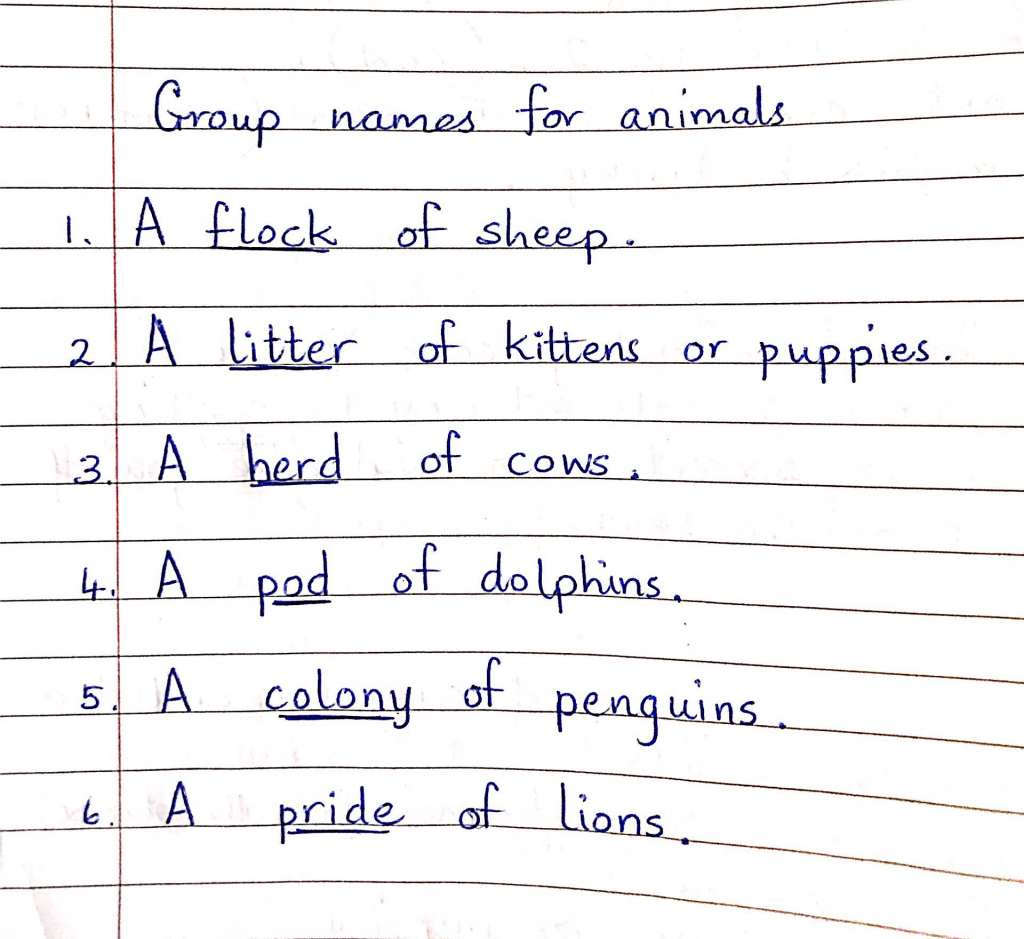 Group names for animals
1. A flock of sheep.
2. A litter of kittens or puppies.
3. A herd of cows.
4. A pod of dolphins.
5. A colony of penguins.
6. A pride of lions.